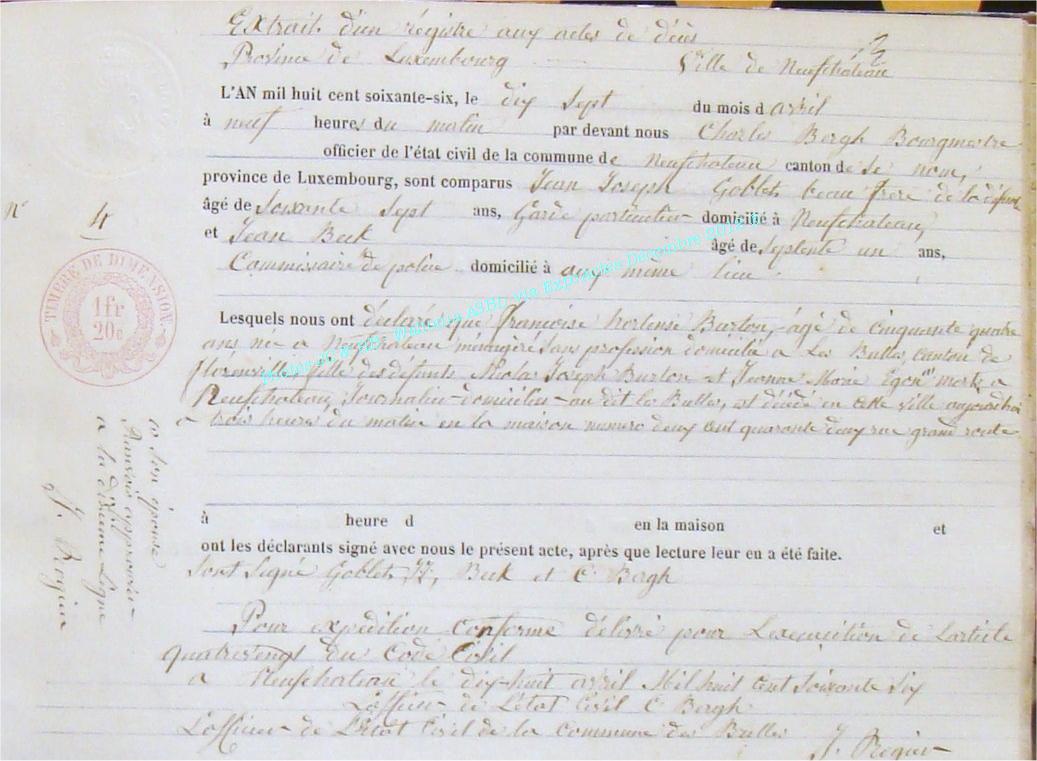 Extrait d'un régistre aux actes de décès
Province de Luxembourg Ville de Neufchateau
L'AN mil huit cent soixante-six, le dix sept du mois d avril
à neuf heures du matin par devant nous Charles Bergh Bourgmestre
officier de l'état civil de la commune de Neufchateau canton de se nom,
province de Luxembourg, sont comparus Jean Joseph Goblets beau frere de la défunte
âgé de soixante sept ans, Garde particulier domicilié à Neufchateau,
et Jean Beck âgé de septente un ans,
Commissaire de police domicilié à aux même lieu
Lesquels nous ont déclaré que françoise hortense Burton, agé de cinquante quatre
ans née a Neufchateau menagère sans profession domicilié a Les Bulles, canton de
florenville, fille des défunts Nicolas Joseph Burton et Jeanne Marie morts a
Neufchateau, Journalier domicilier au dit les Bulles, est décédé en cette ville aujourdhui
a trois heures du matin en la maison numero deux cent quarante deux rue grand route
à heure d en la maison et
ont les déclarants signé avec nous le présent acte, après que lecture leur en a été faite.
sont Signé Goblets JJ, Beck et C Bergh
Pour expédition conforme délivré pour L'execution de L'article
quatrevengt du Code Civil
a Neufchateau le dix-huit avril Mil huit cent soixante six
L'officier de L'état Civil C Bergh
L'officier de L'état Civil de la Commune des Bulles
J. Rogier
N° 4
TIMBRE DE DIMENSION.
1 fr
20 c
co son épouse
Renvois approuvé
a la ligne
J. Rogier
ASBL via Exploactes Décembre 2012 ©